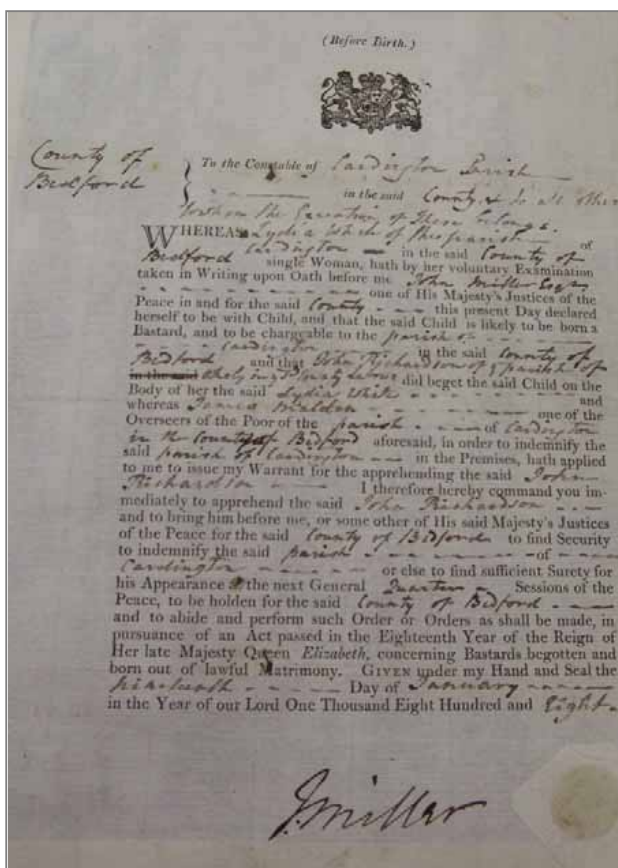 (Before Birth.)
County of
Bedford
To the Constable of Cardington Parish
in the said County & to all other
whom the Execution of These belongs.
WHEREAS Lydia White of the parish of
Cardington in the said County of
Bedford single Woman, hath by her voluntary Examination
taken in Writing upon Oath before me John Miller Esqr
one of His Majesty's Justices of the
Peace in and for the said County this present Day declared
herself to be with Child, and that the said Child is likely to be born a
Bastard, and to be chargeable to the parish of
Cardington in the said County of
Bedford and that John Richardson of parish of
in the said did beget the said Child on the
Body of her the said Lydia White and
whereas James Maldin one of the
Overseers of the Poor of the parish of Cardington
in the County of Bedford aforesaid, in order to indemnify the
said parish of Cardington in the Premises, hath applied
to me to issue my Warrant for the apprehending the said John
Richardson I therefore hereby command you im-
mediately to apprehend the said John Richardson
and to bring him before me, or some other of His said Majesty's Justices
of the Peace for the said County of Bedford to find Security
to indemnify the said parish of
Cardington or else to find sufficient Surety for
his Appearance at the next General Quarter Sessions of the
Peace, to be holden for the said County of Bedford
and to abide and perform such Order or Orders as shall be made, in
pursuance of an Act passed in the Eighteenth Year of the Reign of
Her late Majesty Queen Elizabeth, concerning Bastards begotten and
born out of lawful Matrimony. GIVEN under my Hand and Seal the
Nineteenth Day of January
in the Year of our Lord One Thousand Eight Hundred and Eight
J. Miller